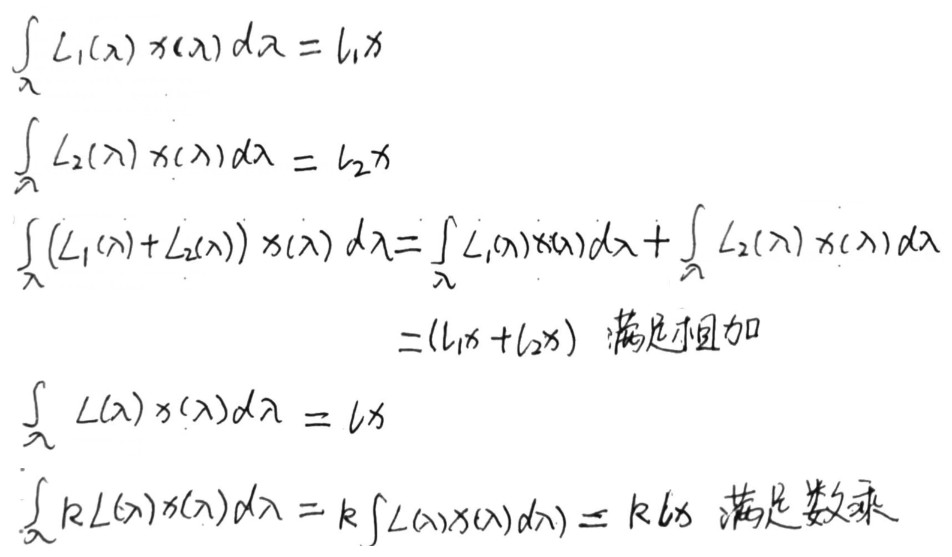 ∫_λ L₁(λ) x(λ) dλ = l₁x
∫_λ L₂(λ) x(λ) dλ = l₂x
∫_λ (L₁(λ) + L₂(λ)) x(λ) dλ = ∫_λ L₁(λ) x(λ) dλ + ∫_λ L₂(λ) x(λ) dλ
= (l₁x + l₂x) 满足相加
∫_λ L(λ) x(λ) dλ = lx
∫_λ k L(λ) x(λ) dλ = k ∫ L(λ) x(λ) dλ) = k lx 满足数乘